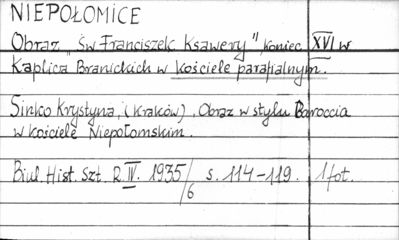 NIEPOŁOMICE
Obraz „Św Franciszek Ksawery", koniec XVI w
Kaplica Branickich w kościele parafialnym.
Sinko Krystyna, (Kraków), Obraz w stylu Baroccia
w kościele Niepołomskim.
Biul. Hist. Szt. R. IV. 1935/6 s. 114-119. 1 fot.